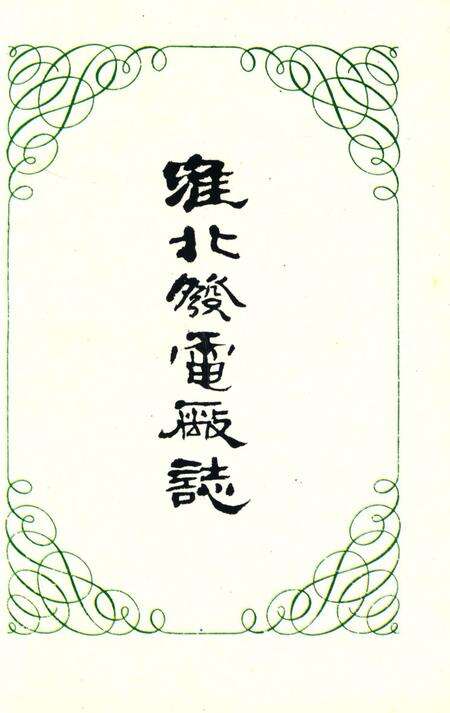 淮北發電廠誌